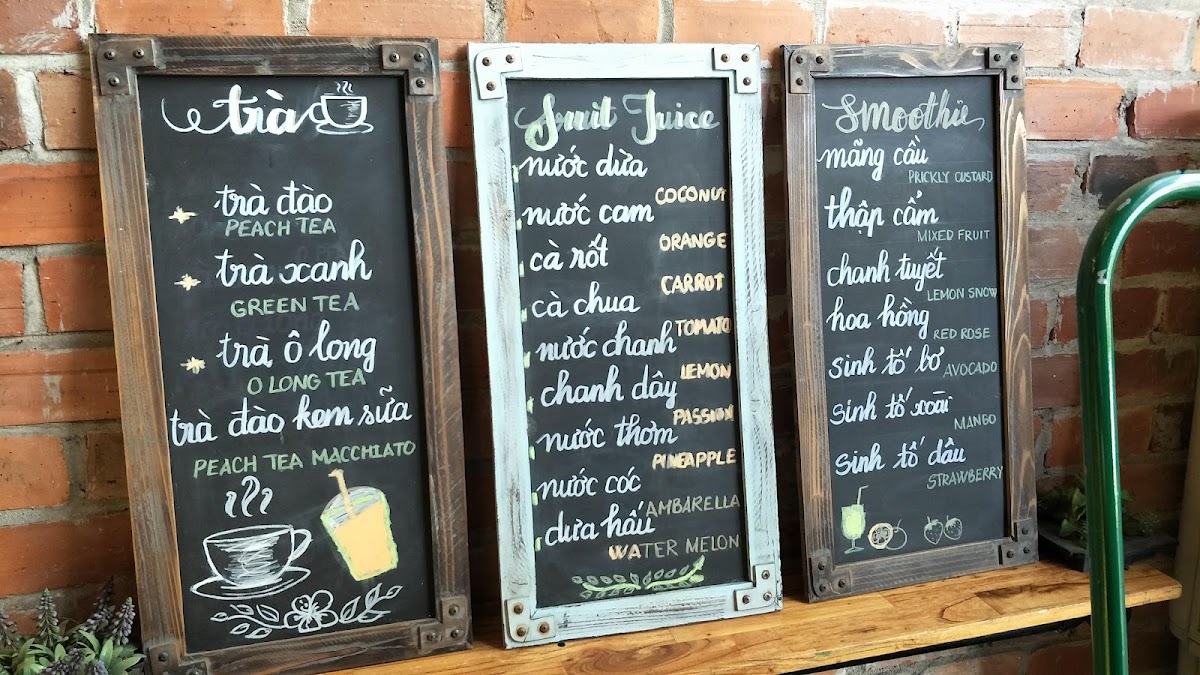 trà
trà đào
PEACH TEA
trà xanh
GREEN TEA
trà ô long
O LONG TEA
trà đào kem sữa
PEACH TEA MACCHIATO
Fruit Juice
nước dừa
COCONUT
nước cam
ORANGE
cà rốt
CARROT
cà chua
TOMATO
nước chanh
LEMON
chanh dây
PASSION
nước thơm
PINEAPPLE
nước cóc
AMBARELLA
dưa hấu
WATER MELON
Smoothie
mãng cầu
PRICKLY CUSTARD
thập cẩm
MIXED FRUIT
chanh tuyết
LEMON SNOW
hoa hồng
RED ROSE
sinh tố bơ
AVOCADO
sinh tố xoài
MANGO
sinh tố dâu
STRAWBERRY